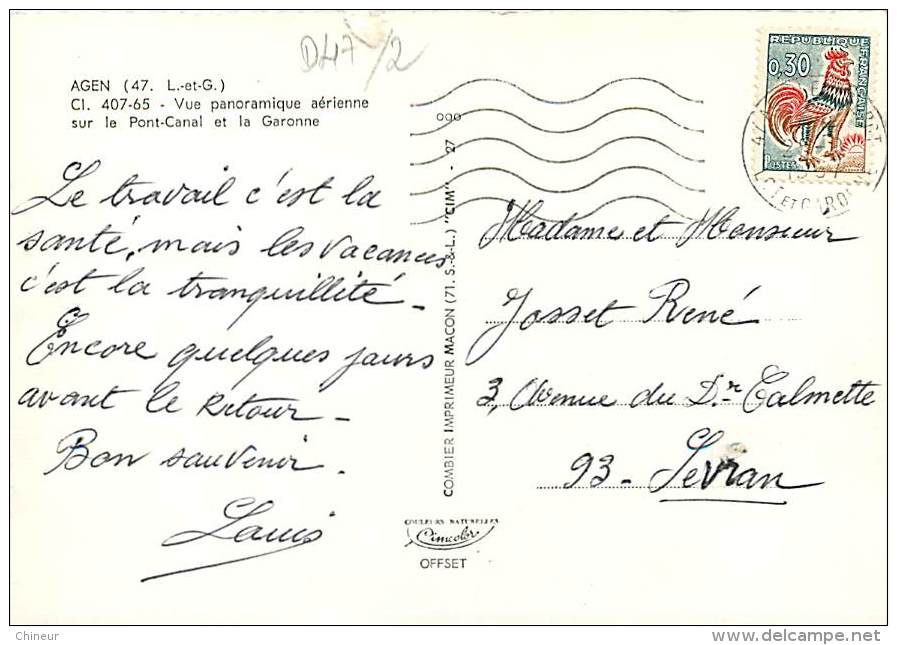 D47/2
AGEN (47. L.-et-G.)
Cl. 407-65 - Vue panoramique aérienne
sur le Pont-Canal et la Garonne
Le travail c'est la
santé, mais les vacances
c'est la tranquillité -
Encore quelques jours
avant le retour -
Bon souvenir.
Louis
COMBIER IMPRIMEUR MACON (71. S.-&-L.) "CIM" - 27
COULEURS NATURELLES
Cimcolor
OFFSET
REPUBLIQUE FRANÇAISE
0,30
POSTES
LOT ET GARONNE
Madame et Monsieur
Josset René
3, Avenue du Dr Calmette
93 - Sevran
Chineur
www.delcampe.net